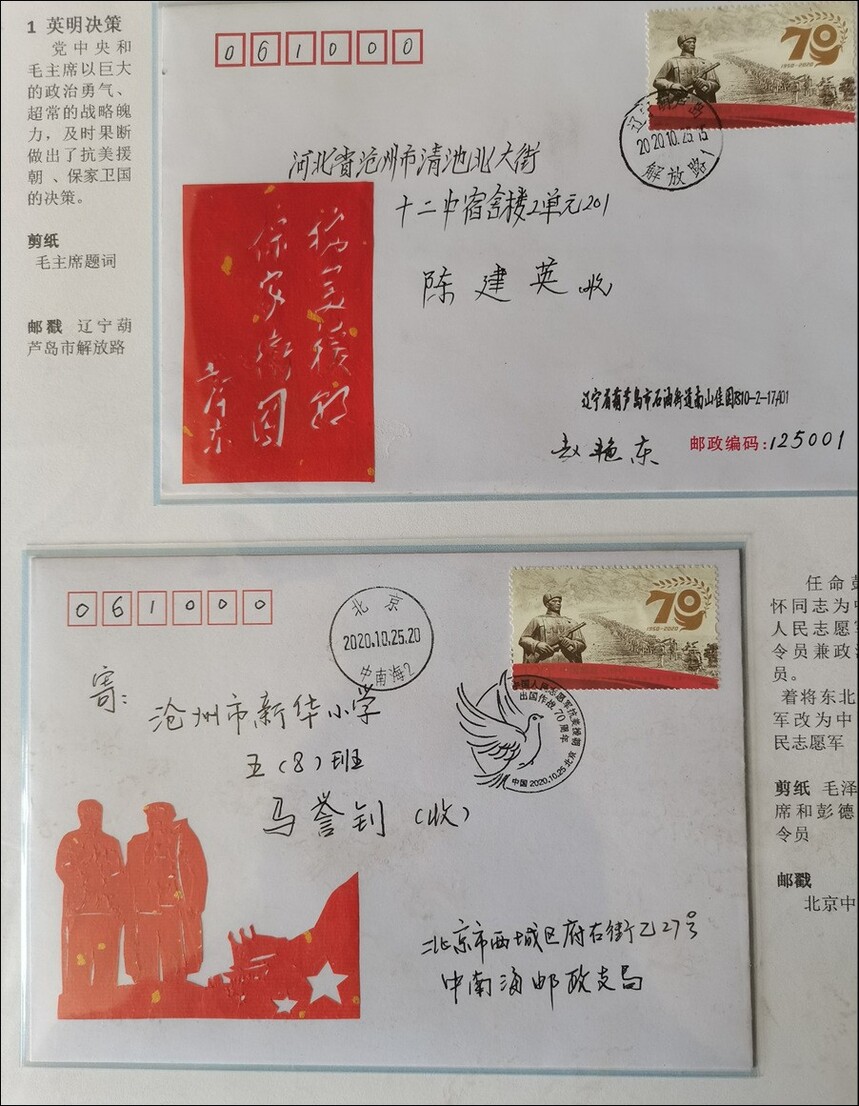 1 英明决策
党中央和
毛主席以巨大
的政治勇气、
超常的战略魄
力，及时果断
做出了抗美援
朝、保家卫国
的决策。
剪纸
毛主席题词
邮戳 辽宁葫
芦岛市解放路
061000
70
1950-2020
辽宁
2020.10.25.15
解放路1
河北省沧州市清池北大街
十二中宿舍楼2单元201
陈建英 收
抗美援朝
保家卫国
毛泽东
辽宁省葫芦岛市石油街道南山佳园B10-2-17,401
赵艳东
邮政编码：125001
061000
北京
2020.10.25.20
中南海2
70
1950-2020
中国人民志愿军抗美援朝
出国作战70周年
中国 2020.10.25 北京
寄：
沧州市新华小学
五（8）班
马誉钊（收）
北京市西城区府右街乙27号
中南海邮政支局
任命彭
怀同志为中
人民志愿军
令员兼政治
员。
着将东北
军改为中
民志愿军
剪纸 毛泽
席和彭德
令员
邮戳
北京中